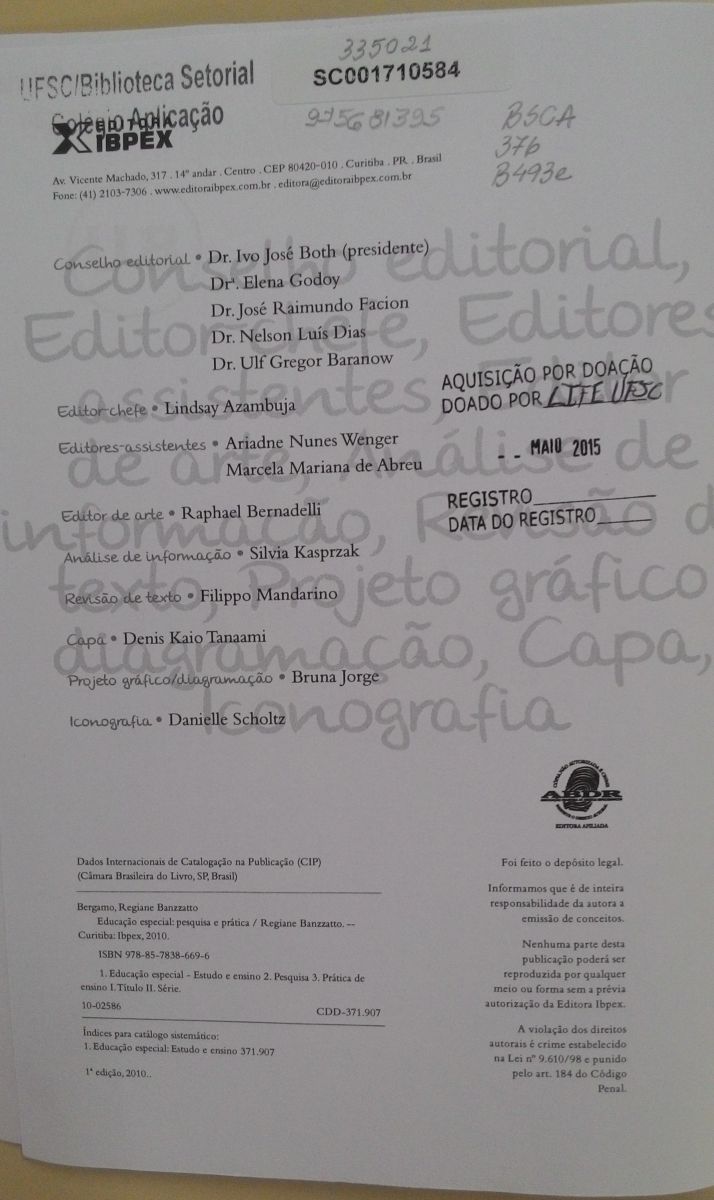 335021
UFSC/Biblioteca Setorial
SC001710584
Colégio Aplicação
975681395
BSCA
376
B493e
EDITORA
IBPEX
Av. Vicente Machado, 317 . 14º andar . Centro . CEP 80420-010 . Curitiba . PR . Brasil
Fone: (41) 2103-7306 . www.editoraibpex.com.br . editora@editoraibpex.com.br
Conselho editorial,
Editor-chefe, Editores
assistentes, Editor
de arte, Análise de
informação, Revisão d
texto, Projeto gráfico
diagramação, Capa,
Iconografia
Conselho editorial • Dr. Ivo José Both (presidente)
Drª. Elena Godoy
Dr. José Raimundo Facion
Dr. Nelson Luís Dias
Dr. Ulf Gregor Baranow
Editor-chefe • Lindsay Azambuja
Editores-assistentes • Ariadne Nunes Wenger
Marcela Mariana de Abreu
Editor de arte • Raphael Bernadelli
Análise de informação • Silvia Kasprzak
Revisão de texto • Filippo Mandarino
Capa • Denis Kaio Tanaami
Projeto gráfico/diagramação • Bruna Jorge
Iconografia • Danielle Scholtz
AQUISIÇÃO POR DOAÇÃO
DOADO POR LIFE UFSC
-- MAIO 2015
REGISTRO
DATA DO REGISTRO
ABDR
EDITORA AFILIADA
Dados Internacionais de Catalogação na Publicação (CIP)
(Câmara Brasileira do Livro, SP, Brasil)
Bergamo, Regiane Banzzatto
Educação especial: pesquisa e prática / Regiane Banzzatto. --
Curitiba: Ibpex, 2010.
ISBN 978-85-7838-669-6
1. Educação especial - Estudo e ensino 2. Pesquisa 3. Prática de
ensino I. Título II. Série.
10-02586
CDD-371.907
Índices para catálogo sistemático:
1. Educação especial: Estudo e ensino 371.907
1ª edição, 2010..
Foi feito o depósito legal.
Informamos que é de inteira
responsabilidade da autora a
emissão de conceitos.
Nenhuma parte desta
publicação poderá ser
reproduzida por qualquer
meio ou forma sem a prévia
autorização da Editora Ibpex.
A violação dos direitos
autorais é crime estabelecido
na Lei nº 9.610/98 e punido
pelo art. 184 do Código
Penal.